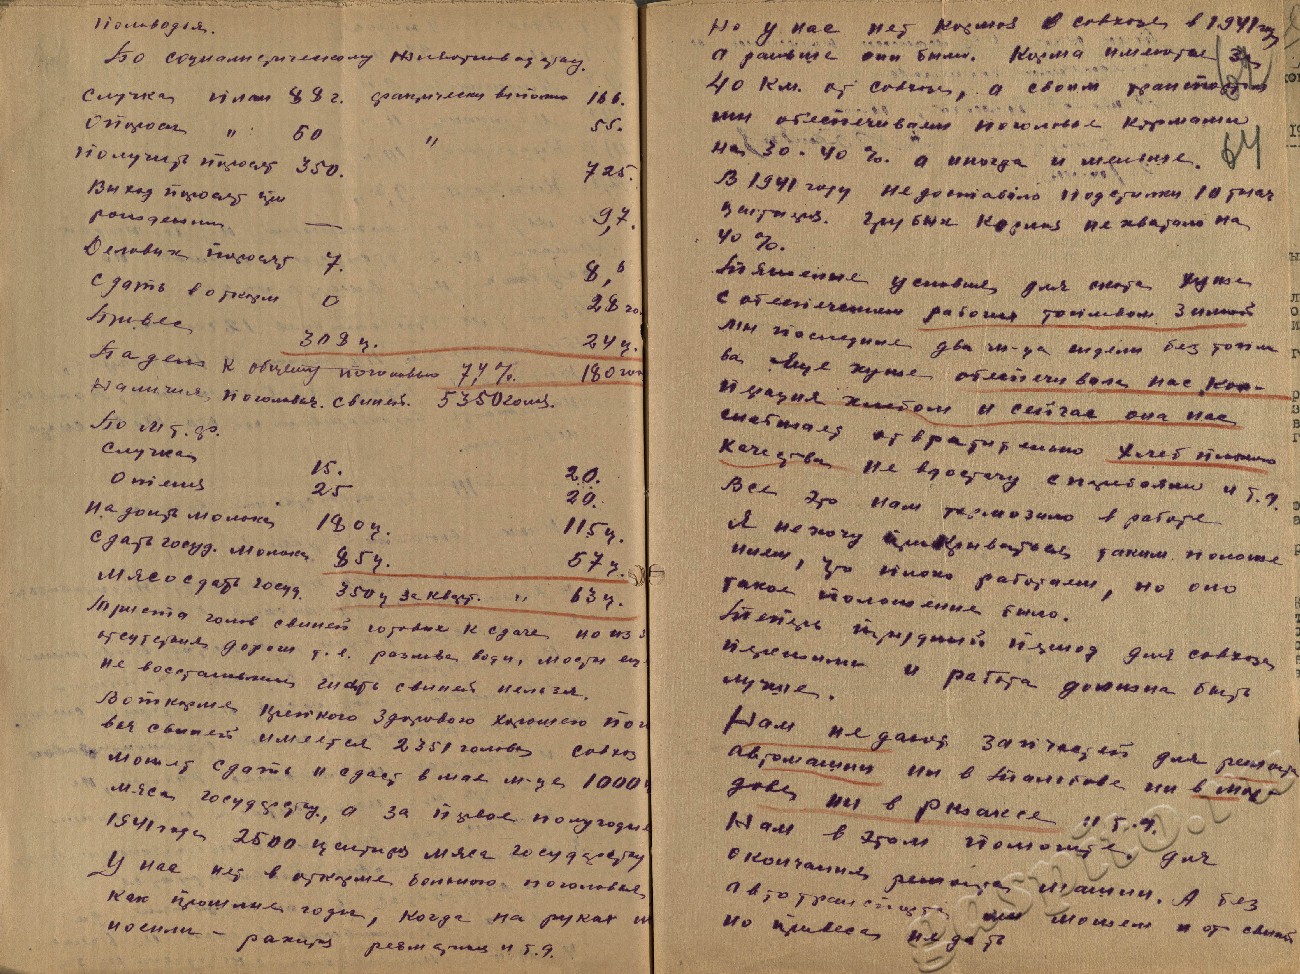 половодья.
По социалистическому животноводству.
Случка план 88 г. фактически выполн 166.
Опорос " 50 " 55.
Получить поросят 350. 725.
Выход поросят при
рождении — 9,7.
Деловых поросят 7. 8,6
Сдать в откорм 0 28 го
Привес 308 ц. 24 ц.
Падеж к общему поголовью 7,4%. 180 гол
Наличия поголовья свиней 5350 голов.
По м.т.ф.
Случка 15. 20.
Отелия 25 20.
Надоить молока 180 ц. 115 ц.
Сдать госуд. молока 85 ц. 57 ц.
Мясосдать госуд. 350 ц за кварт. " 63 ц.
Триста голов свиней готовых к сдаче но из з
отсутствия дорог т.е. разлива воды, мосты ещ
не восстановлены гнать свиней нельзя.
В откорме крепкого здорового хорошего пог
вья свиней имеется 2351 голова совхоз
может сдать и сдаст в мае м-це 1000
мяса государству, а за первое полугодие
1941 года 2500 центнер мяса государству
У нас нет в откорме больного поголовья
как прошлые годы, когда на руках
носили — рахит ревматизм и т.д.
Но у нас нет кормов в совхозе в 1941 году
а раньше они были. Корма имеются за
40 км. от совхоза, а своим транспортом
мы обеспечиваем поголовье кормами
на 30-40%. а иногда и меньше. 64
В 1941 году недоставало подстилки 10 тысяч
центнер. грубых кормов не хватало на
40%.
Тяжелые условия для скота хуже
с обеспечением рабочих топливом зимой
мы последние два м-ца сидели без топли
ва. Еще хуже обеспечивала нас, коо-
перация хлебом и сейчас она нас
снабжает отвратительно хлеб плохого
качества не вдостачу с перебоями и т.д.
Все это нам тормозило в работе
Я не хочу прикрываться таким положе
нием, что плохо работаем, но оно
такое положение было.
Теперь трудный период для совхоза
пережили и работа должна быть
лучше.
Нам не дают запчастей для ремонта
автомашин ни в Тамбове ни в Мор
довее ни в Ржаксе и т.д.
Нам в этом помогите. для
окончания ремонта машин. А без
автотранспорта мы можем и от свиней
но привеса не дать